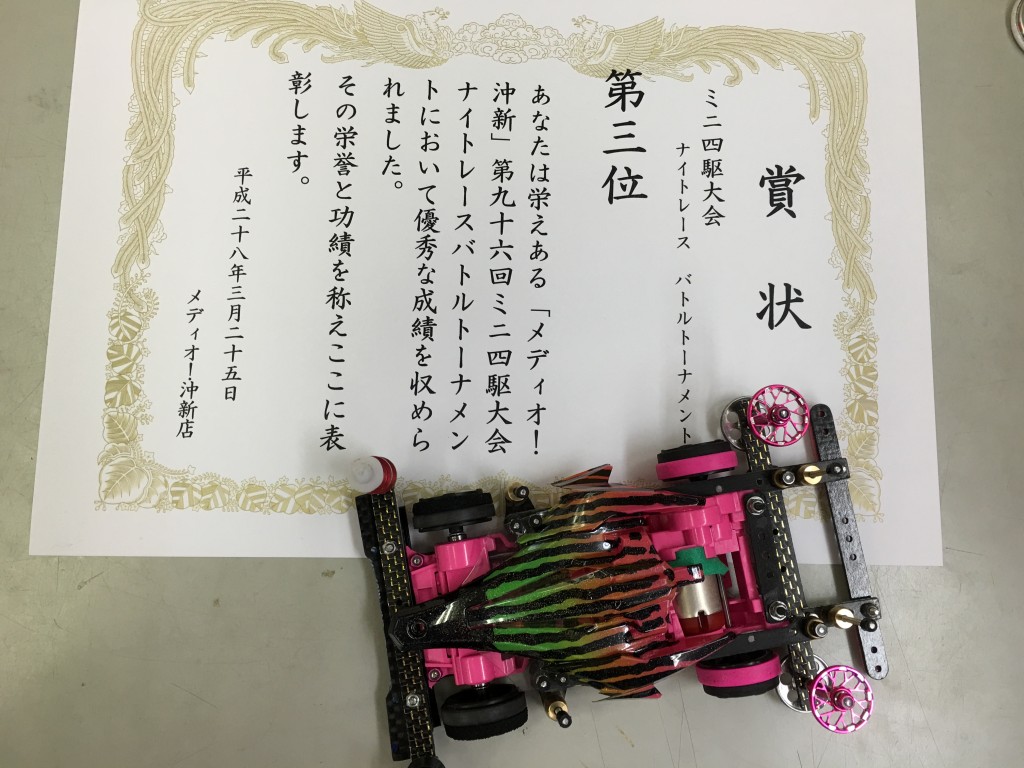 賞状
ミニ四駆大会
ナイトレース バトルトーナメント
第三位
あなたは栄えある「メディオ!
沖新」第九十六回ミニ四駆大会
ナイトレースバトルトーナメン
トにおいて優秀な成績を収めら
れました。
その栄誉と功績を称えここに表
彰します。
平成二十八年三月二十五日
メディオ!沖新店